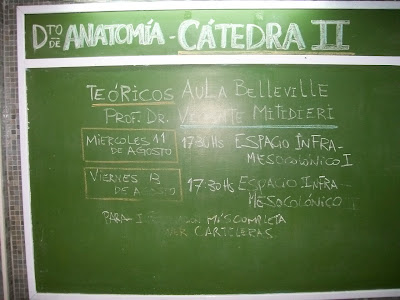 Dto. DE ANATOMÍA - CÁTEDRA II
TEÓRICOS AULA BELLEVILLE
PROF. DR. VICENTE MITIDIERI
MIERCOLES 11 DE AGOSTO 17:30 Hs ESPACIO INFRA-
MESOCOLÓNICO I
VIERNES 13 DE AGOSTO 17:30 Hs ESPACIO INFRA-
MESOCOLÓNICO I
PARA INFORMACIÓN MÁS COMPLETA
VER CARTELERAS